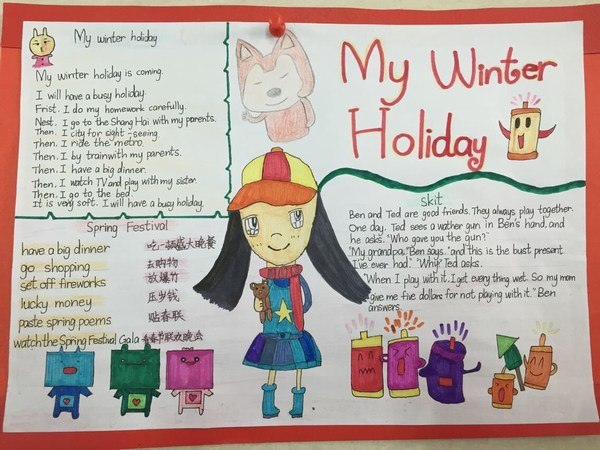 My winter holiday
My winter holiday is coming.
I will have a busy holiday.
Frist. I do my homework carefully.
Nest. I go to the Shang Hai with my parents.
Then. I city for sight-seeing.
Then. I ride the metro.
Then. I by trainwith my parents.
Then. I have a big dinner.
Then. I watch TV and play with my sister.
Then. I go to the bed.
It is very soft. I will have a busy holiday.
My Winter
Holiday
Spring Festival
have a big dinner 吃一顿盛大晚餐
go shopping 去购物
set off fireworks 放爆竹
lucky money 压岁钱
paste spring poems 贴春联
watch the Spring Festival Gala 看春节联欢晚会
skit
Ben and Ted are good friends. They always play together.
One day. Ted sees a wather gun in Ben's hand. and
he asks. "Who gave you the gun?"
"My grandpa," Ben says. "and this is the bust present
I've ever had." "Why" Ted asks.
"When I play with it. I get every thing wet. So my mom
give me five dollars for not playing with it." Ben
answers.